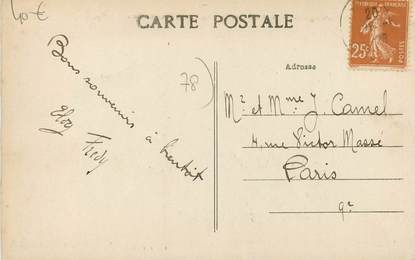 40 €
CARTE POSTALE
RÉPUBLIQUE FRANÇAISE
25c
POSTES
Adresse
78
Bons souvenirs à bientôt
Fredy
Mr et Mme J. Camel
4, rue Victor Massé
Paris
9e